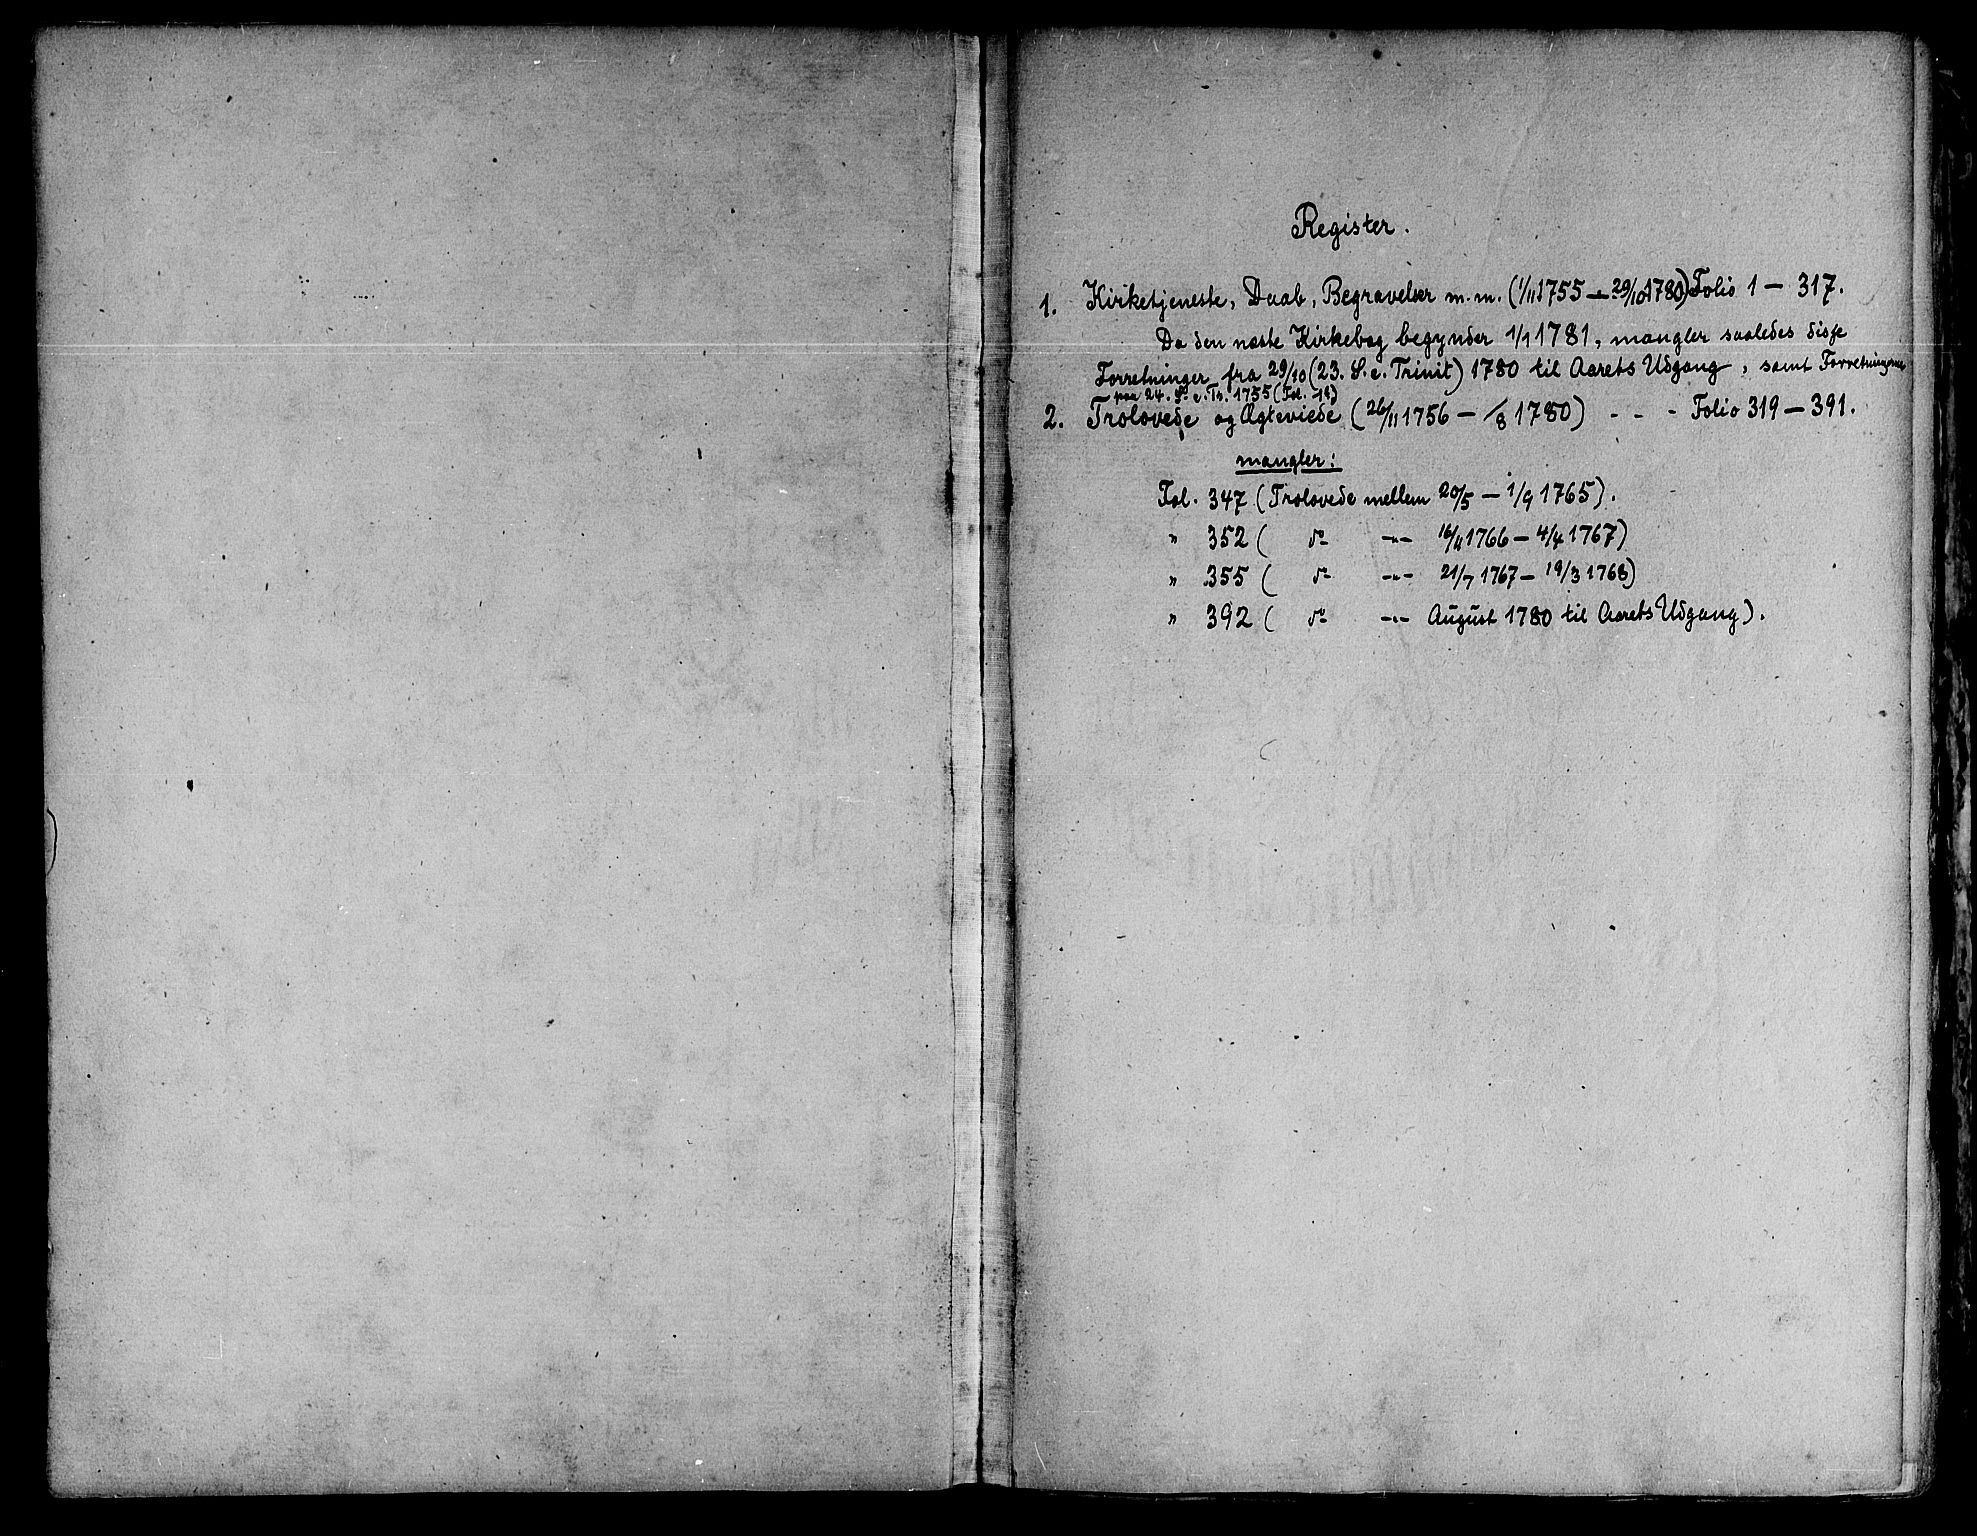 Register.
1. Kirketjeneste, Daab, Begravelser m.m. (1/11 1755 – 29/10 1780) Folio 1 – 317.
Da den næste Kirkebog begynder 1/1 1781, mangler saaledes disse
Forretninger fra 29/10 (23. S. e. Trinit) 1780 til Aarets Udgang, samt Forretningerne
paa 24. S. e. Tr. 1755 (Fol. 1ª)
2. Trolovede og Ægteviede (26/11 1756 – /8 1780) - - - Folio 319 – 391.
mangler:
Fol. 347 (Trolovede mellem 20/5 – 1/9 1765).
" 352 ( do -"- 16/11 1766 – 4/4 1767)
" 355 ( do -"- 21/7 1767 – 19/3 1768)
" 392 ( do -"- August 1780 til Aarets Udgang).